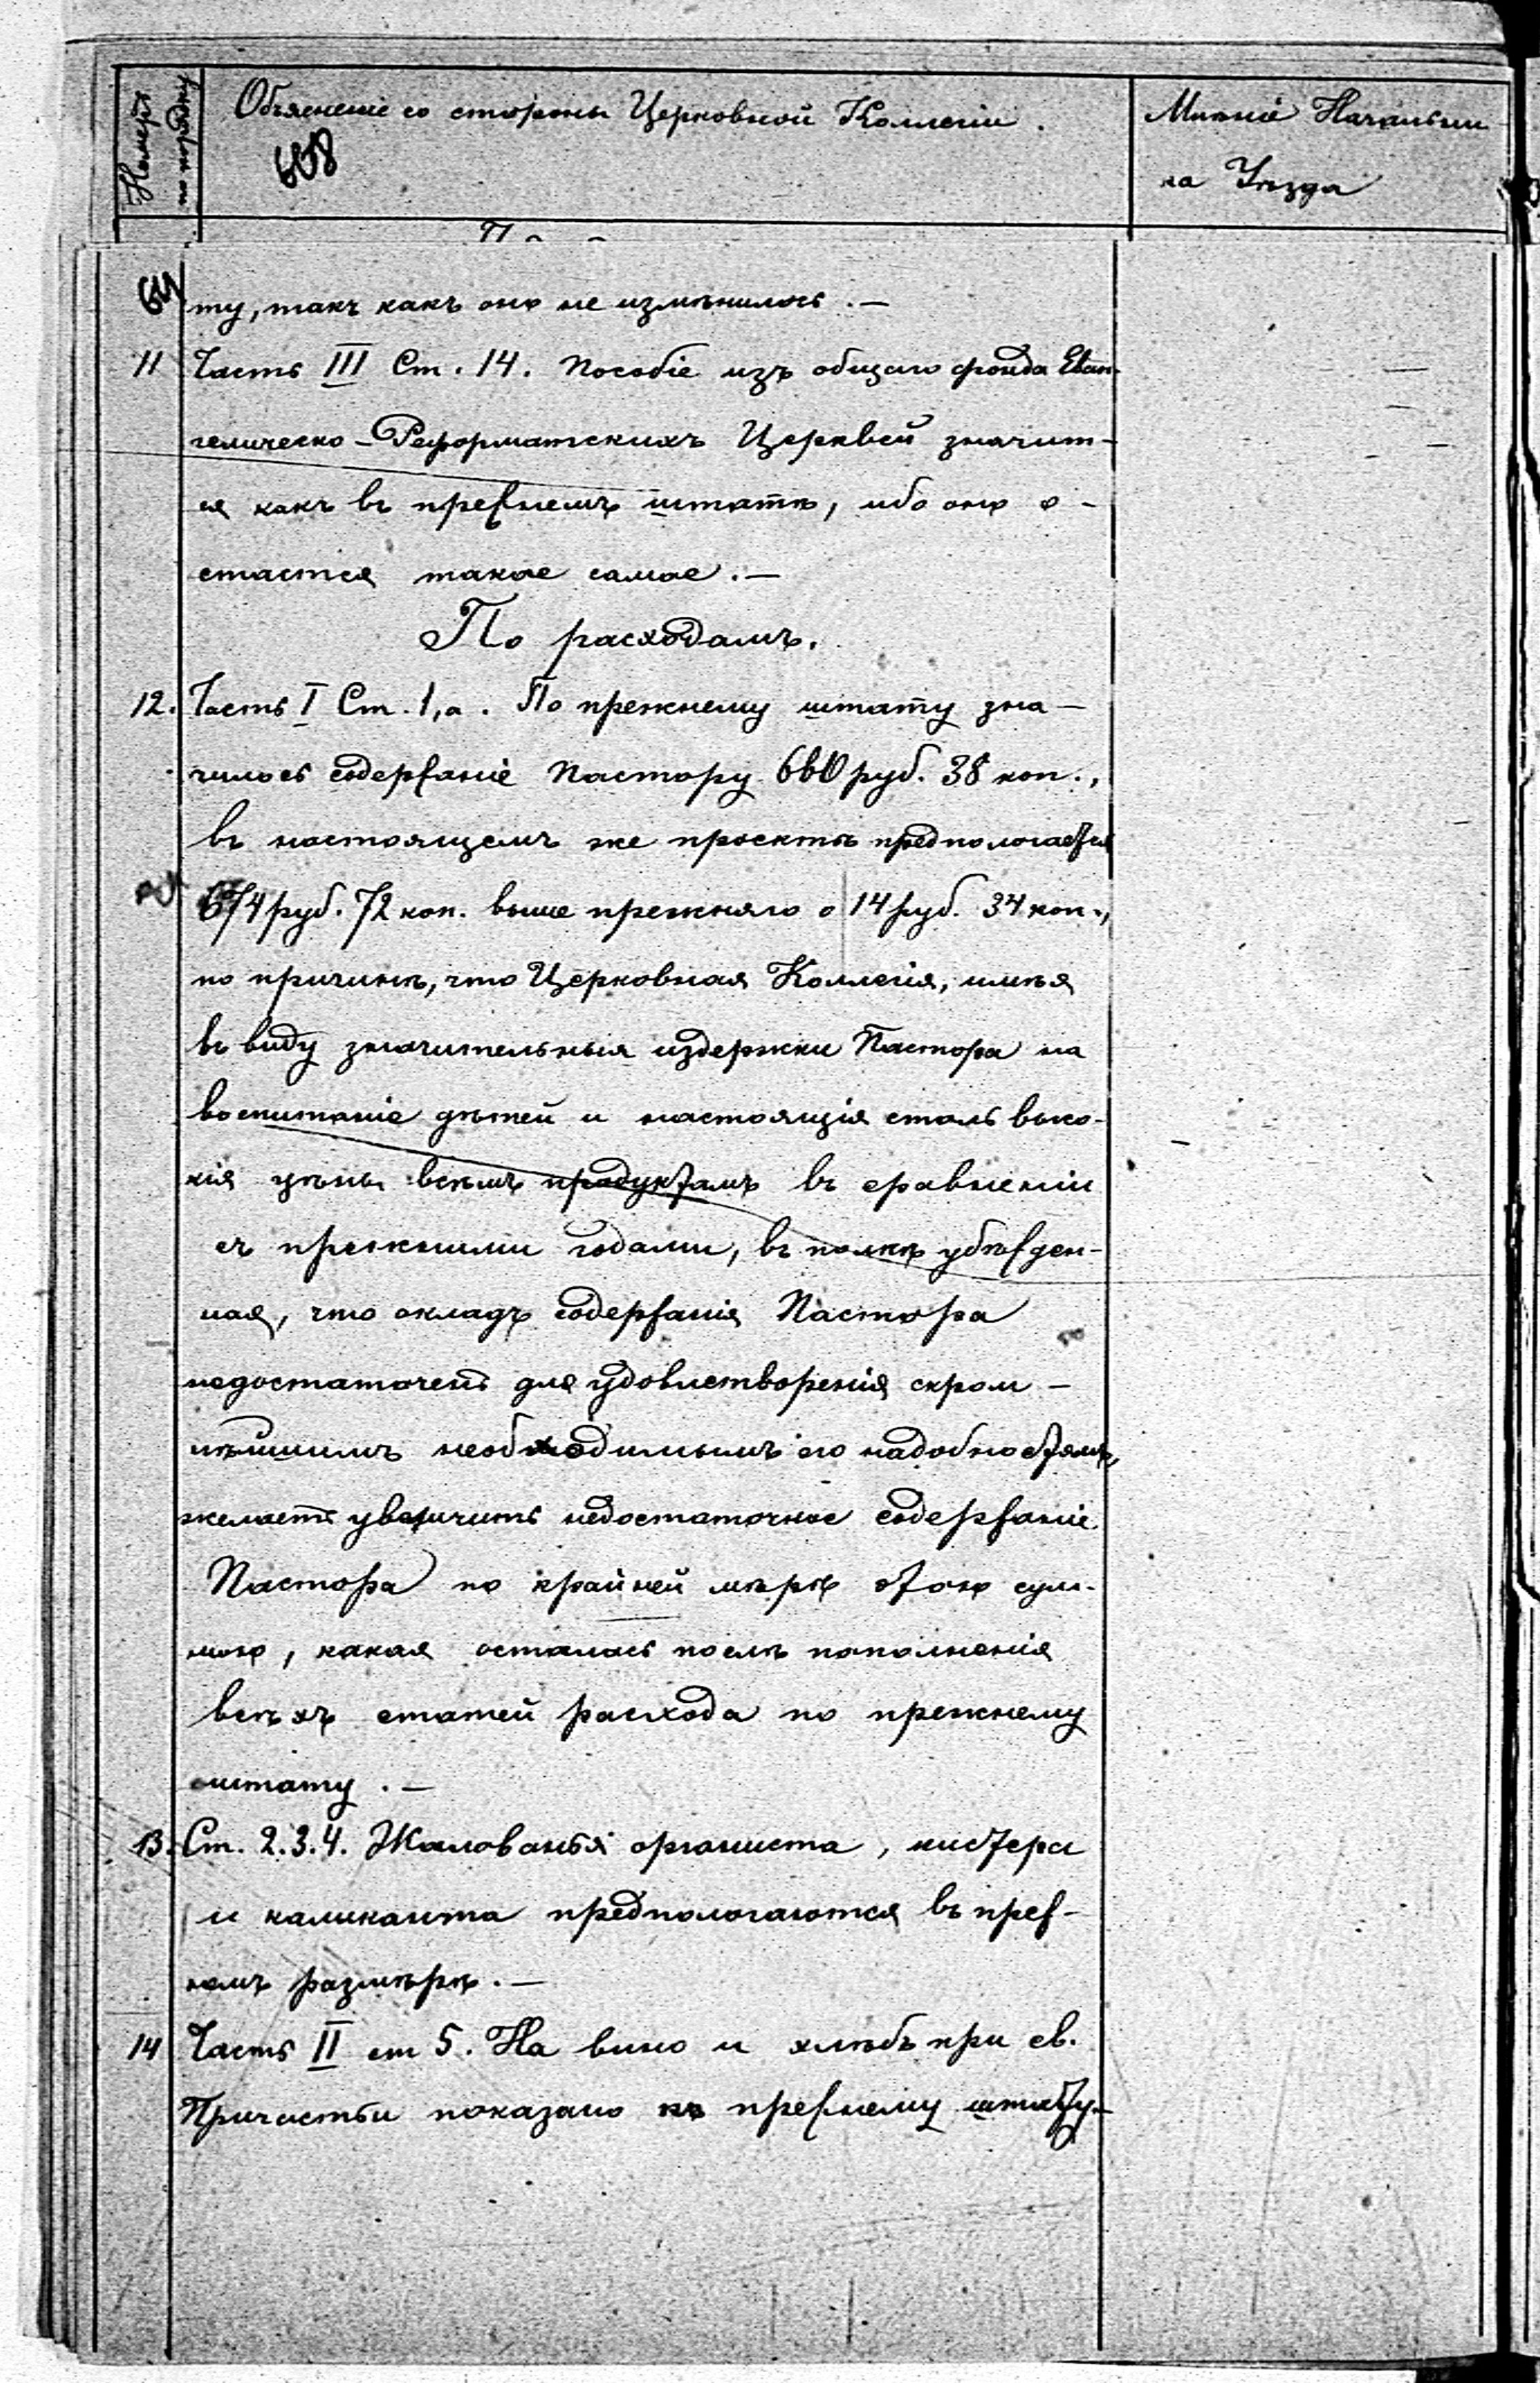 Номеръ по порядку
Объясненіе со стороны Церковной Коллегіи.
Мнѣніе Начальни
ка Уѣзда
608
ту, такъ какъ оно не измѣнилось. —
11 Часть III Ст. 14. Пособіе изъ общаго фонда Еван-
гелическо-Реформатскихъ Церквей значит-
ся какъ въ прежнемъ штатѣ, ибо оно о-
стается такое самое. —
По расходамъ.
12. Часть I Ст. 1, а. По прежнему штату зна-
чилось содержаніе Пастору 660 руб. 38 коп.,
въ настоящемъ же проектѣ предпологается
674 руб. 72 коп. выше прежняго о 14 руб. 34 коп.,
по причинѣ, что Церковная Коллегія, имѣя
въ виду значительныя издержки Пастора на
воспитаніе дѣтей и настоящія столь высо-
кія цѣны всѣмъ продуктамъ въ сравненіи
съ прежними годами, въ полнѣ убѣжден-
ная, что окладъ содержанія Пастора
недостаточенъ для удовлетворенія скром-
нѣйшимъ необходимымъ его надобностямъ,
желаетъ увеличить недостаточное содержаніе
Пастора по крайней мѣрѣ этою сум-
мою, какая осталась послѣ пополненія
всѣхъ статей расхода по прежнему
штату. —
13. Ст. 2.3.4. Жалованья органиста, кистера
и каликанта предпологаются въ преж-
немъ размѣрѣ. —
14 Часть II ст 5. На вино и хлѣбъ при св.
Причастьи показано по прежнему штату. —